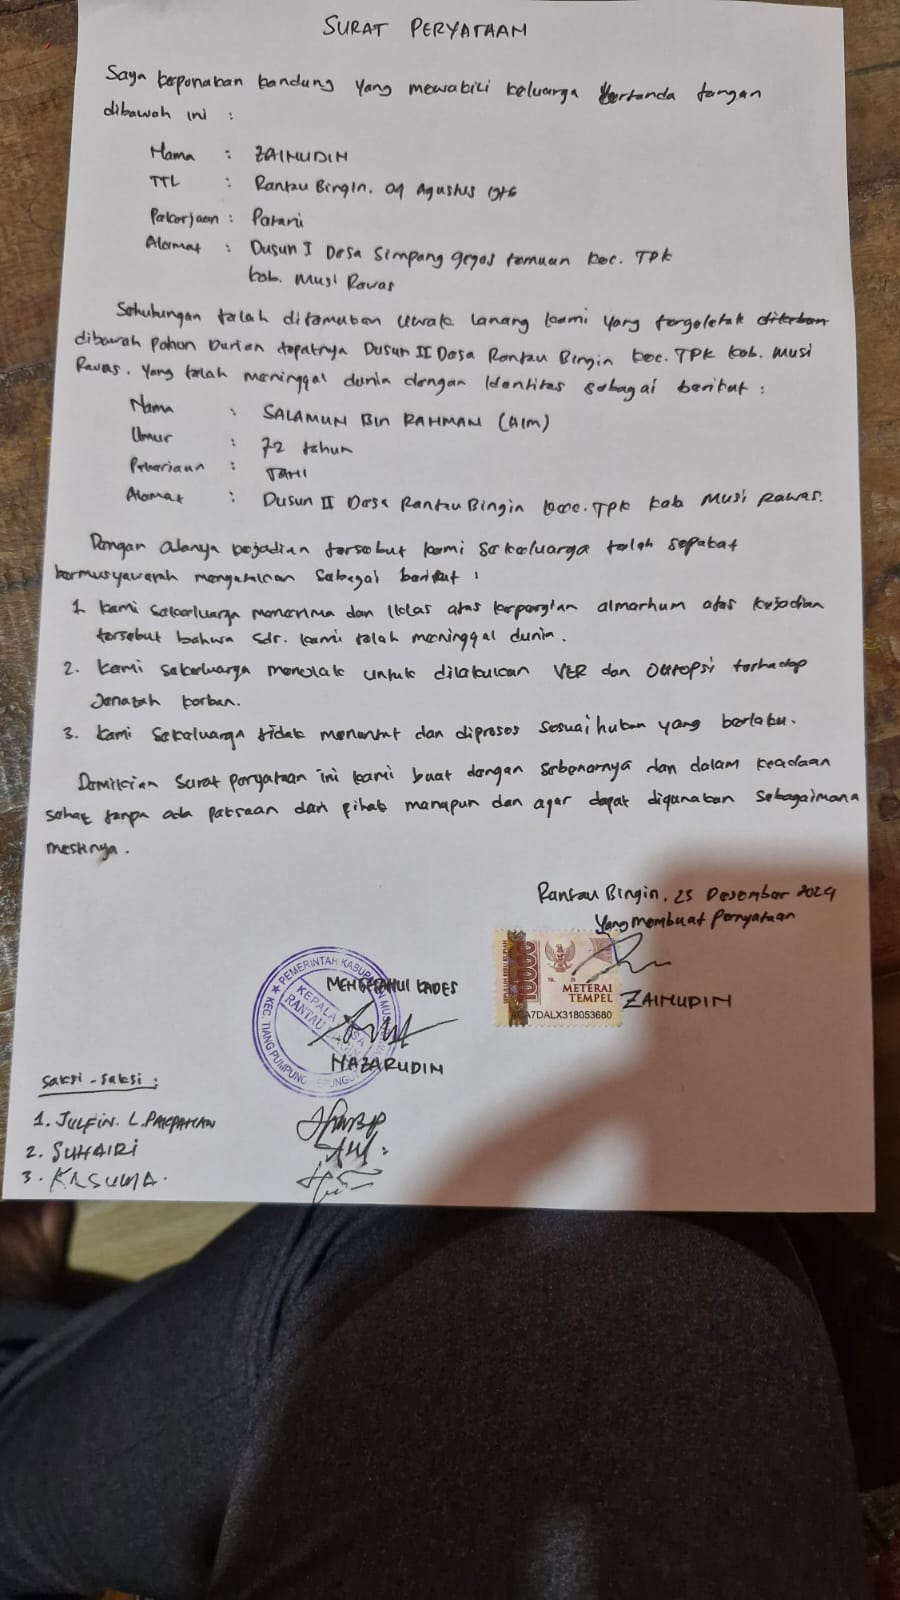 SURAT PERYATAAN
Saya keponakan kandung yang mewakili keluarga bertanda tangan
dibawah ini :
Nama : ZAINUDIN
TTL : Rantau Bingin, 04 Agustus 1976
Pekerjaan : Petani
Alamat : Dusun I Desa Simpang gegas temuan kec. TPK
kab. Musi Rawas
Sehubungan telah ditemukan uwak lanang kami yang tergeletak
dibawah Pohon Durian tepatnya Dusun II Desa Rantau Bingin kec. TPK kab. Musi
Rawas. Yang telah meninggal dunia dengan Identitas sebagai berikut :
Nama : SALAMUN Bin RAHMAN (Alm)
Umur : 72 tahun
Pekerjaan : TANI
Alamat : Dusun II Desa Rantau Bingin kec. TPK kab Musi Rawas.
Dengan adanya kejadian tersebut kami sekeluarga telah sepakat
bermusyawarah mengatakan sebagai berikut :
1. kami sekeluarga menerima dan Iklas atas kepergian almarhum atas kejadian
tersebut bahwa sdr. kami telah meninggal dunia.
2. kami sekeluarga menolak untuk dilakukan VER dan Outopsi terhadap
Jenazah korban.
3. kami sekeluarga tidak menuntut dan diproses sesuai hukum yang berlaku.
Demikian surat peryataan ini kami buat dengan sebenarnya dan dalam keadaan
sehat tanpa ada paksaan dari pihak manapun dan agar dapat digunakan sebagaimana
mestinya.
Rantau Bingin, 25 Desember 2024
Yang membuat Pernyataan
10000
METERAI
TEMPEL
DALX318053680
ZAINUDIN
MENGETAHUI KADES
PEMERINTAH KABUPATEN MUSI
KEPALA DESA
RANTAU
KEC. TIANG PUMPUNG KEPUNGUT
NAZARUDIN
Saksi - Saksi :
1. JULFIN. L. PAKPAHAN
2. SUHAIRI
3. KASUMA.